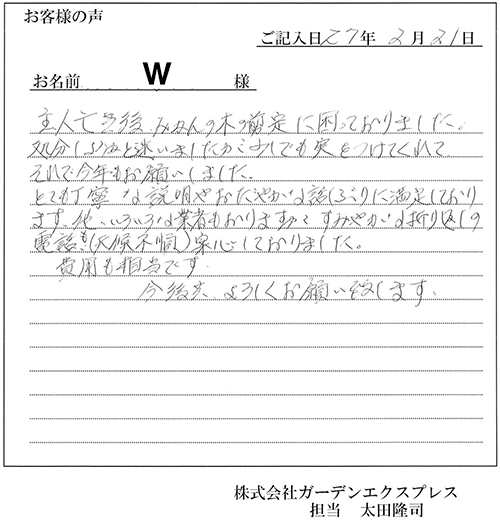 お客様の声
ご記入日 27年 2月 21日
お名前 W 様
主人亡き後 みかんの木の剪定に困っておりました。
処分しようかと迷いましたが少しでも実をつけてくれて
それで今年もお願いしました。
とても丁寧な説明やおだやかな話しぶりに満足しており
ます。他、いろいろな業者もおりますが すみやかな折り返しの
電話も(天候不順)安心しておりました。
費用も相当です
今後共、よろしくお願い致します。
株式会社ガーデンエクスプレス
担当 太田隆司